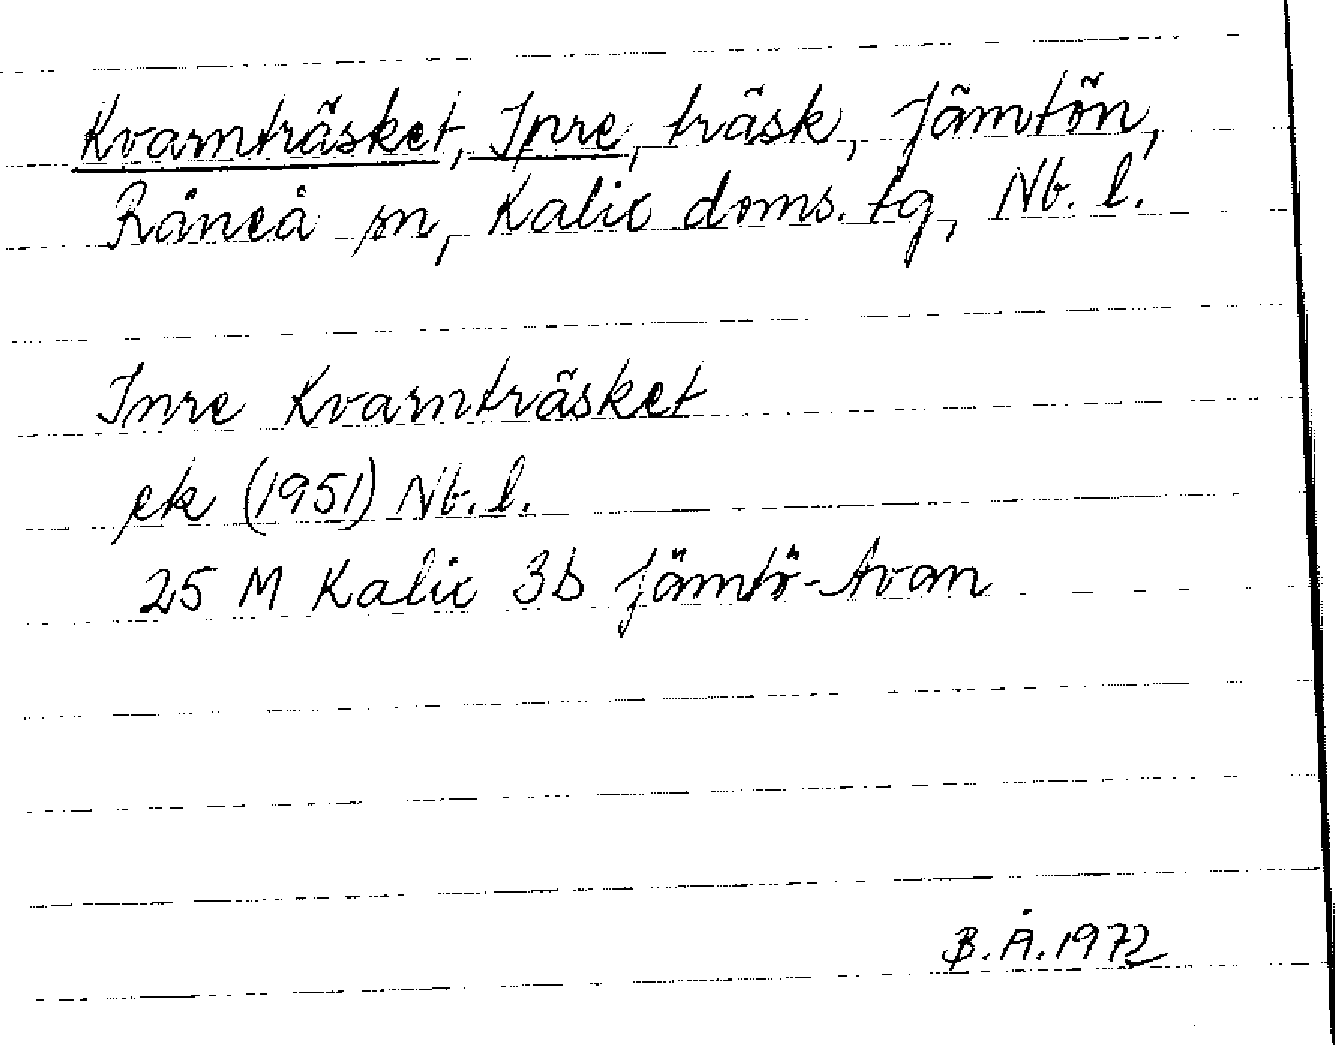 Kvarnträsket, Inre, träsk, Jämtön,
Råneå sn, Kalix doms. tg, Nb. l.
Inre Kvarnträsket
ek (1951) Nb. l.
25 M Kalix 3b Jämtö-Avan
B. Å. 1972